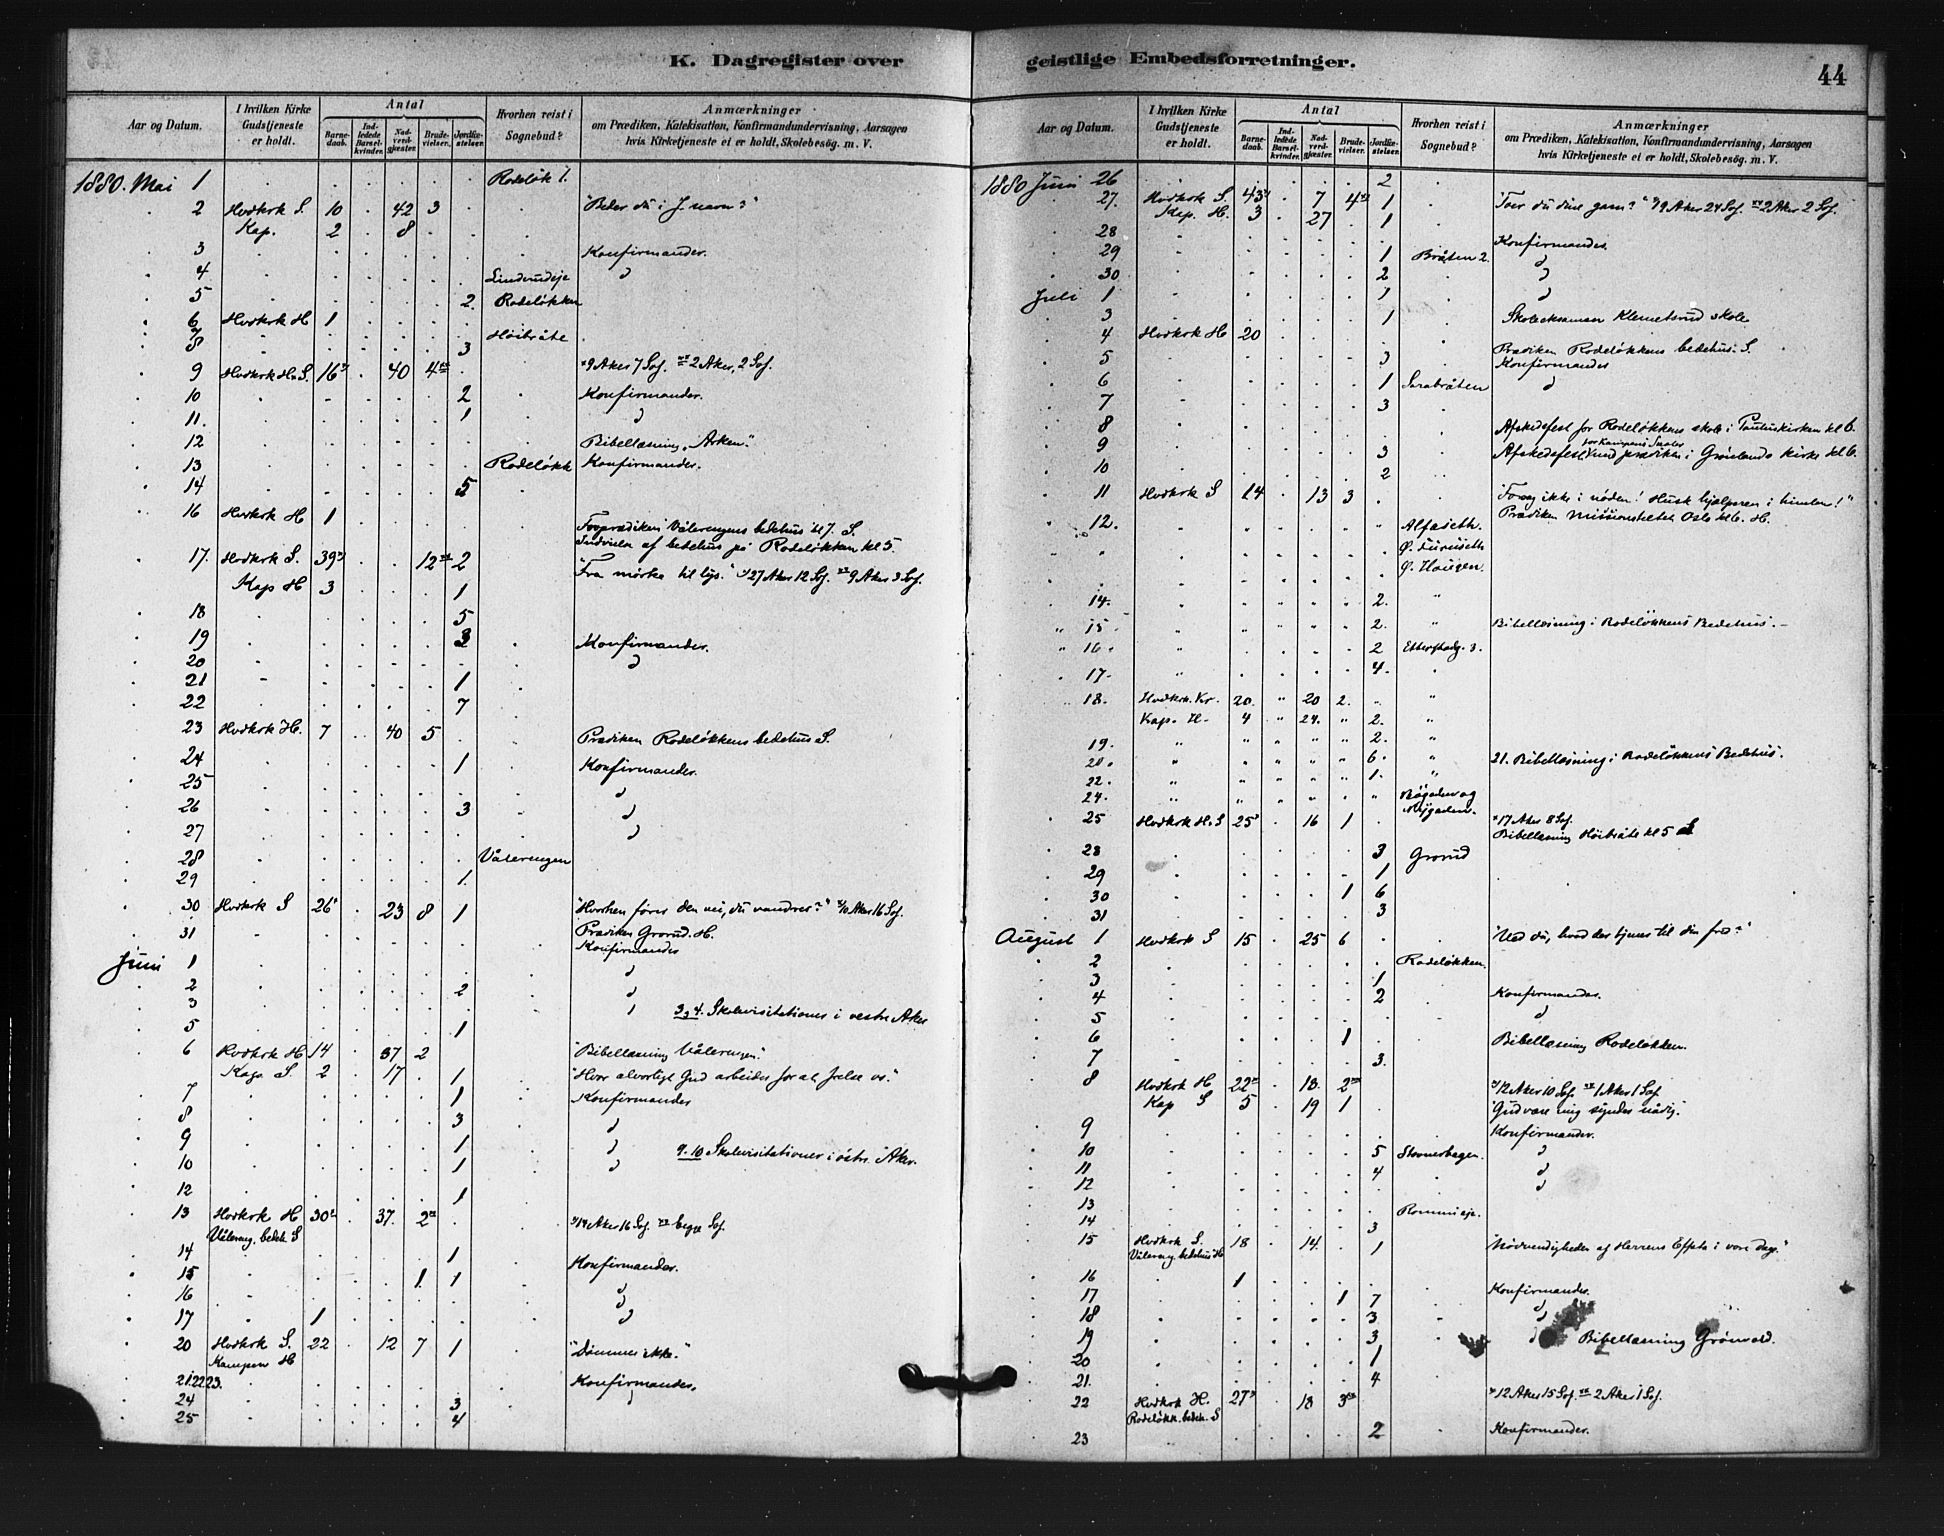 K. Dagregister over
Aar og Datum.
I hvilken Kirke Gudstjeneste er holdt.
Antal
Barnedaab.
Indledede Barselkvinder.
Nadverdgjæster.
Brudevielser.
Jordfæstelser.
Hvorhen reist i Sognebud?
Anmærkninger
om Prædiken, Katekisation, Konfirmandundervisning, Aarsagen
hvis Kirketjeneste ei er holdt, Skolebesøg. m. V.
1880. Mai 1 Rodeløk 7.
2 Hvdkrk S. 10 42 3 "Beder du i J. navn?"
Kap. 2 8
3 Konfirmander.
4 Linderudeje d
5 2 Rodeløkken
6 Hvdkrk H 1
7 Høibråte
8 3
9 Hvdkrk H.S. 16 40 4 9 Aker 7 Sof. 2 Aker, 2 Sof.
10 2 Konfirmander.
11. 1 d
12 Bibellæsning "Arken".
13 Rodeløkk Konfirmander.
14 5
16 Hvdkrk H 1 Forprædiken Vålerengens bedehus kl 7. S.
Indvielse af bedehus på Rodeløkken kl 5.
17. Hvdkrk S. 39 12 2 "Fra mørke til lys." 27 Aker 12 Sof. 9 Aker 3 Sof.
Kap H 3 1
18 5
19 3 Konfirmander.
20 d
21 1
22 7
23 Hvdkrk H. 7 40 5 Prædiken Rodeløkkens bedehus S.
24 1 Konfirmander.
25 d
26 3 d
27 d
28 Vålerengen
29 1.
30 Hvdkrk S 26 23 8 1 "Hvorhen fører den vei, du vandrer?" 10 Aker 16 Sof.
31 Prædiken Grorud. H.
Konfirmander
Juni 1 d
2 2 d
3 3 & 4. Skolevisitationer i vestre Aker
5 1
6 Hvdkrk H 14 37 2 "Bibellæsning Vålerengen."
Kap. S. 2 17 1 "Hvor alvorligt Gud arbeider for at frelse os."
7 1 Konfirmander
8 3 d
9 1 d 9. 10 Skolevisitationer i østre Aker.
10 1 d
12 1
13 Hvdkrk H 30 37. 2 14 Aker 16 Sof. begge Sof.
Vålereng. bedeh. S
14 1 Konfirmander.
15 1 1
16 d
17 1 d
20 Hvdkrk S. 22 12 7 1 "Dømmer ikke."
Kampen H
21.22.23. Konfirmander.
24 3
25 4
geistlige Embedsforretninger.
44
Aar og Datum.
I hvilken Kirke Gudstjeneste er holdt.
Antal
Barnedaab.
Indledede Barselkvinder.
Nadverdgjæster.
Brudevielser.
Jordfæstelser.
Hvorhen reist i Sognebud?
Anmærkninger
om Prædiken, Katekisation, Konfirmandundervisning, Aarsagen
hvis Kirketjeneste ei er holdt, Skolebesög. m. V.
1880 Juni 26 2
27. Hvdkrk S. 43 7 4 1 19 Aker 24 Sof. 2 Aker 2 Sof.
Kap. H. 3 27 1
28 Konfirmander.
29 1 Bråten 2. d
30 2 d
Juli 1 1 d
3 1 Skoleeksamen Klemetsrud skole
4 Hvdkrk H 20
Prædiken Rodeløkkens bedehus. S.
5 3 Konfirmander
6 1 Sarabråten d
7 3
8 Afskedsfest for Rodeløkkens skole i Pauluskirken kl 6.
9 3 Afskedsfest for Kampens Skoler med prædiken i Grønlands kirke kl 6.
10 2
11 Hvdkrk S 14 13 3 "Forsag ikke i nøden! Husk hjælperen i himlen!"
Prædiken Missionsteltet Oslo kl 6. H.
12. Alfaseth.
Ø. Furuseth
Ø. Haugen.
14. 2.
15 2. Bibellæsning i Rodeløkkens Bedehus.
16. 2 Etterstadg. 3.
17. 4.
18. Hvdkrk. Kr. 20. 20 2.
Kap. H. 4 24. 2.
19. 2.
20. 6. 21. Bibellæsning i Rodeløkkens Bedehus.
22. 1.
24. Bøgaden og
Nygaden.
25 Hvdkrk H.S 25 16 1 17 Aker 8 Sof.
Bibellæsning Høibråte kl 5 S
28 3 Grorud
29 1
30 1 6
31 3
August 1 Hvdkrk S 15 25 6 "Ved du, hvad der tjener til din fred?"
2 Rodeløkken.
3 1
4 2 Konfirmander.
5 d
6 1 Bibellæsning Rodeløkken.
7 3.
8 Hvdkrk H 22 18. 2 12 Aker 10 Sof. 1 Aker 1 Sof.
Kap S 5 19 1 "Gud vær mig synder nådig."
9 Konfirmander.
10 5 Stovnerhagen. d
11 4 d
12 d
13 Rommi eje.
14 3
15 Hvdkrk S. 18 14. 1 "Nødvendigheden af Herrens Effata i vore dage."
Vålereng bedehus H
16 1
17 1 7 Konfirmander.
18 3 d
19 3 d Bibellæsning Grönvold.
20 1
21. 4
22 Hvdkrk H. 27 18 3 12 Aker 15 Sof. 2 Aker 1 Sof.
Rodeløkk. bedeh. S
23 2 Konfirmander.